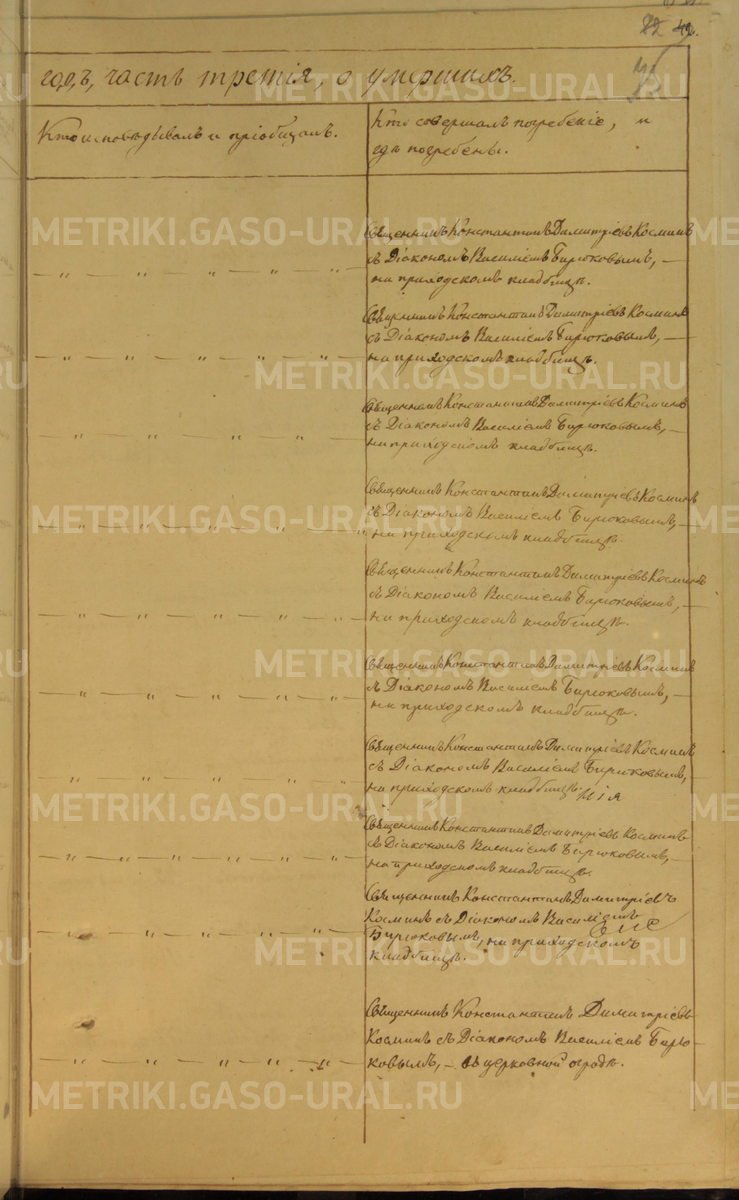 42.
годъ, часть третія, о умершихъ.
Кто исповѣдывалъ и пріобщалъ.
Кто совершалъ погребеніе, и
гдѣ погребены.
Священникъ Константинъ Димитріевъ Косминъ
съ Діакономъ Василіемъ Бирюковымъ, —
на приходскомъ кладбищѣ.
— „ — „ — „ — „ — „ —
Священникъ Константинъ Димитріевъ Косминъ
съ Діакономъ Василіемъ Бирюковымъ, —
на приходскомъ кладбищѣ.
— „ — „ — „ — „ — „ —
Священникъ Константинъ Димитріевъ Косминъ
съ Діакономъ Василіемъ Бирюковымъ, —
на приходскомъ кладбищѣ.
„ — „ — „ — „
Священникъ Константинъ Димитріевъ Косминъ
съ Діакономъ Василіемъ Бирюковымъ, —
на приходскомъ кладбищѣ.
— „ — „ — „ — „ — „
Священникъ Константинъ Димитріевъ Косминъ
съ Діакономъ Василіемъ Бирюковымъ, —
на приходскомъ кладбищѣ.
— „ — „ — „ — „ — „ —
Священникъ Константинъ Димитріевъ Косминъ
съ Діакономъ Василіемъ Бирюковымъ, —
на приходскомъ кладбищѣ.
— „ — „ — „ — „ — „ —
Священникъ Константинъ Димитріевъ Косминъ
съ Діакономъ Василіемъ Бирюковымъ,
на приходскомъ кладбищѣ.
— „ — „ — „ — „ — „ —
Священникъ Константинъ Димитріевъ Косминъ
съ Діакономъ Василіемъ Бирюковымъ, —
на приходскомъ кладбищѣ.
— „ — „ — „ — „ — „ —
Священникъ Константинъ Димитріевъ
Косминъ съ Діакономъ Василіемъ
Бирюковымъ, на приходскомъ
кладбищѣ.
— „ — „ — „ — „ — „ —
Священникъ Константинъ Димитріевъ
Косминъ съ Діакономъ Василіемъ Бирю-
ковымъ, — въ церковной оградѣ.
— „ — „ — „ — „ — „ —
METRIKI.GASO-URAL.RU